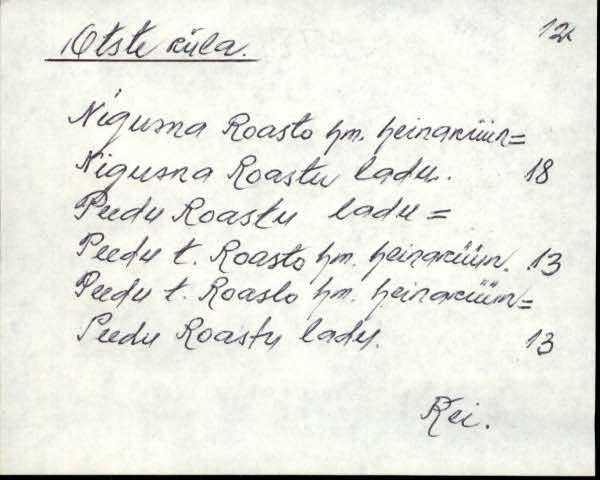 Otste küla. 12
Nigusna Roasto hm. heinaküün=
Nigusna Roastu ladu. 18
Peedu Roastu ladu =
Peedu t. Roasto hm. heinaküün. 13
Peedu t. Roasto hm. heinaküün=
Peedu Roastu ladu. 13
Rei.